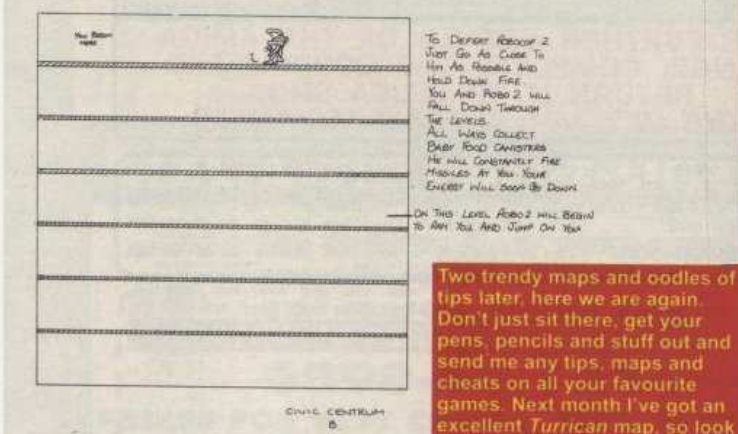 You Begin
Here
To Defeat Robocop 2
Just Go As Close To
Him As Possible And
Hold Down Fire.
You And Robo 2 Will
Fall Down Through
The Levels.
All Ways Collect
Baby Food Canisters
He Will Constantly Fire
Missiles At You. Your
Energy Will Soon Go Down
On This Level Robo 2 Will Begin
To Ram You And Jump On You
Two trendy maps and oodles of
tips later, here we are again.
Don't just sit there, get your
pens, pencils and stuff out and
send me any tips, maps and
cheats on all your favourite
games. Next month I've got an
excellent Turrican map, so look
Civic Centrum